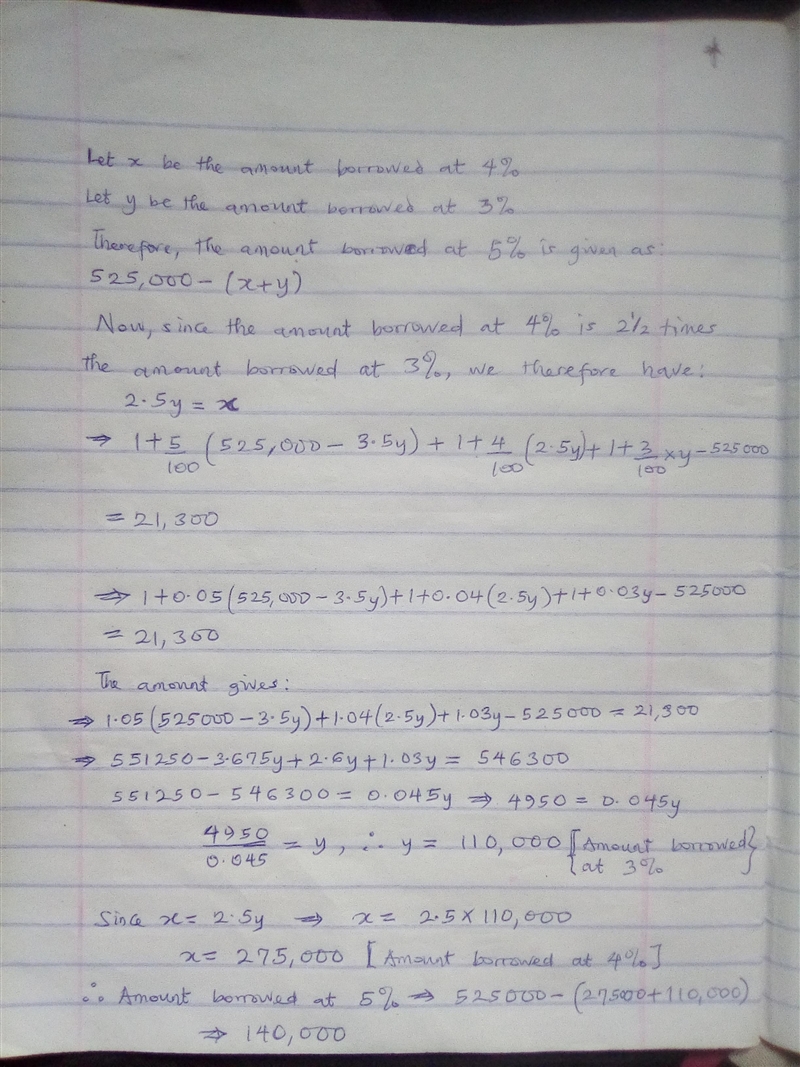 Let x be the amount borrowed at 4%
Let y be the amount borrowed at 3%
Therefore, the amount borrowed at 5% is given as:
525,000 - (x+y)
Now, since the amount borrowed at 4% is 2½ times
the amount borrowed at 3%, we therefore have:
2.5y = x
⇒ 1+5/100 (525,000 - 3.5y) + 1+4/100 (2.5y) + 1+3/100 ×y - 525000
= 21,300
⇒ 1+0.05(525,000 - 3.5y)+1+0.04(2.5y)+1+0.03y - 525000
= 21,300
The amount gives:
⇒ 1.05(525000 - 3.5y)+1.04(2.5y)+1.03y - 525000 = 21,300
⇒ 551250 - 3.675y + 2.6y + 1.03y = 546300
551250 - 546300 = 0.045y ⇒ 4950 = 0.045y
4950/0.045 = y, ∴ y = 110,000 [Amount borrowed at 3%}
Since x = 2.5y ⇒ x = 2.5 × 110,000
x = 275,000 [Amount borrowed at 4%]
∴ Amount borrowed at 5% ⇒ 525000 - (275000 + 110,000)
⇒ 140,000